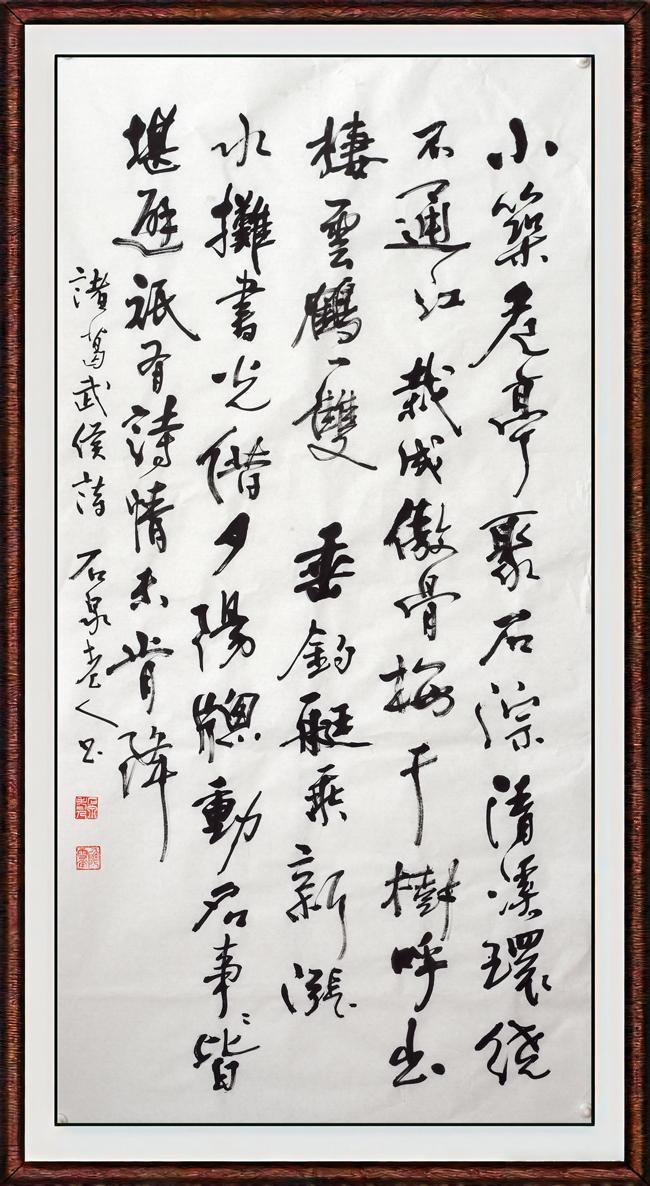 小築危亭聚石淙清溪環繞
不通江栽成傲骨梅千樹呼出
棲雲鶴一雙垂釣艇乘新漲
水攤書光借夕陽牕動名事々皆
堪避祇有詩情未肯降
諸葛武侯詩 石泉老人书